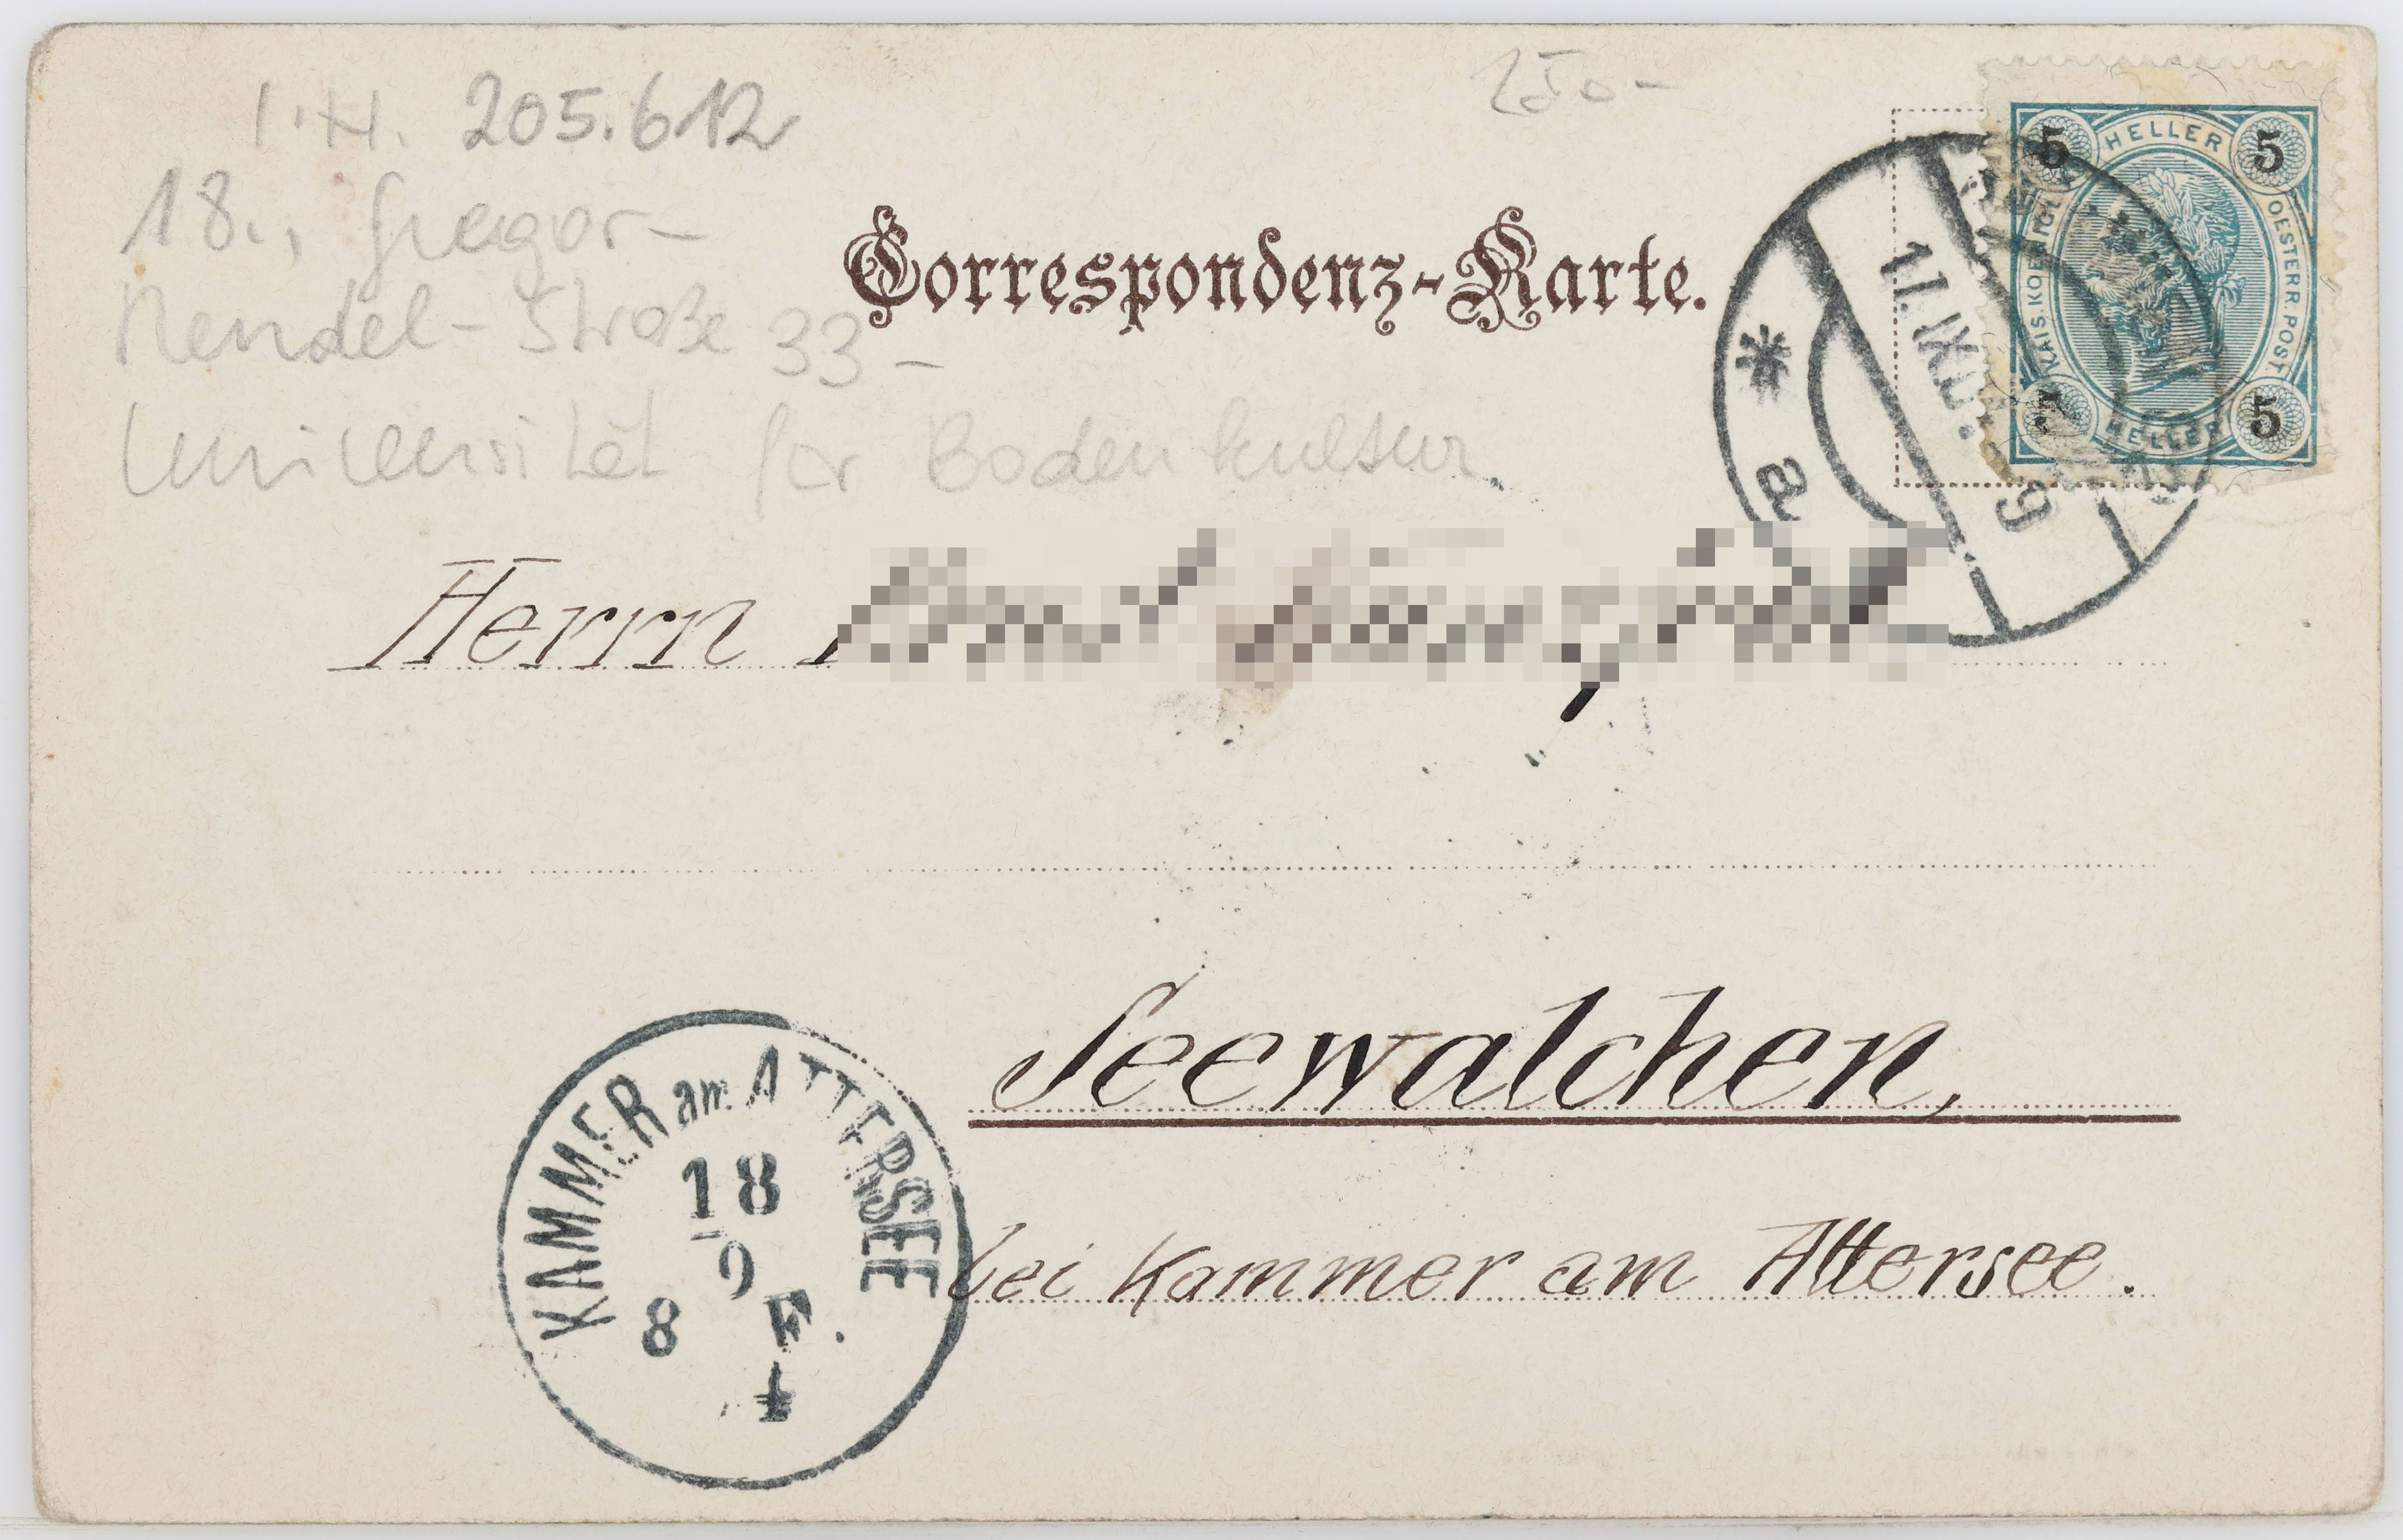 I.N. 205.612
250-
18., Gregor-
Mendel-Straße 33-
Universität für Bodenkultur
Correspondenz-Karte.
5 HELLER 5
KAIS. KOENIGL. OESTERR. POST.
5 HELLER 5
17. IX.
* a
9
Herrn
Seewalchen,
bei Kammer am Attersee.
KAMMER am ATTERSEE
18
9
8 F.
1